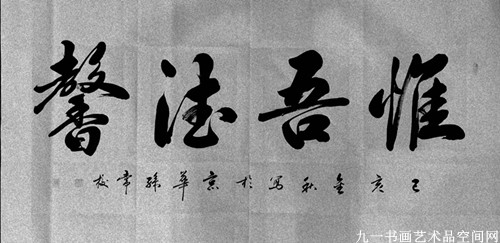 惟吾德馨
己亥金秋写于京华孙常校
九一书画艺术品空间网